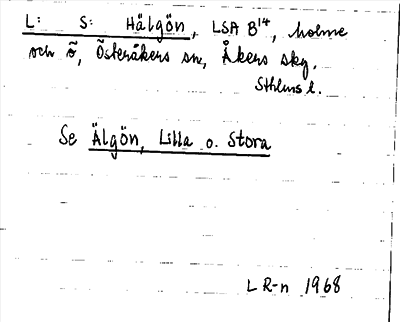 L: S: Hälgön, LSA B¹⁴, holme
och ö, Österåkers sn, Åkers sky.
Sthlms l.
Se Älgön, Lilla o. Stora
L R-n 1968